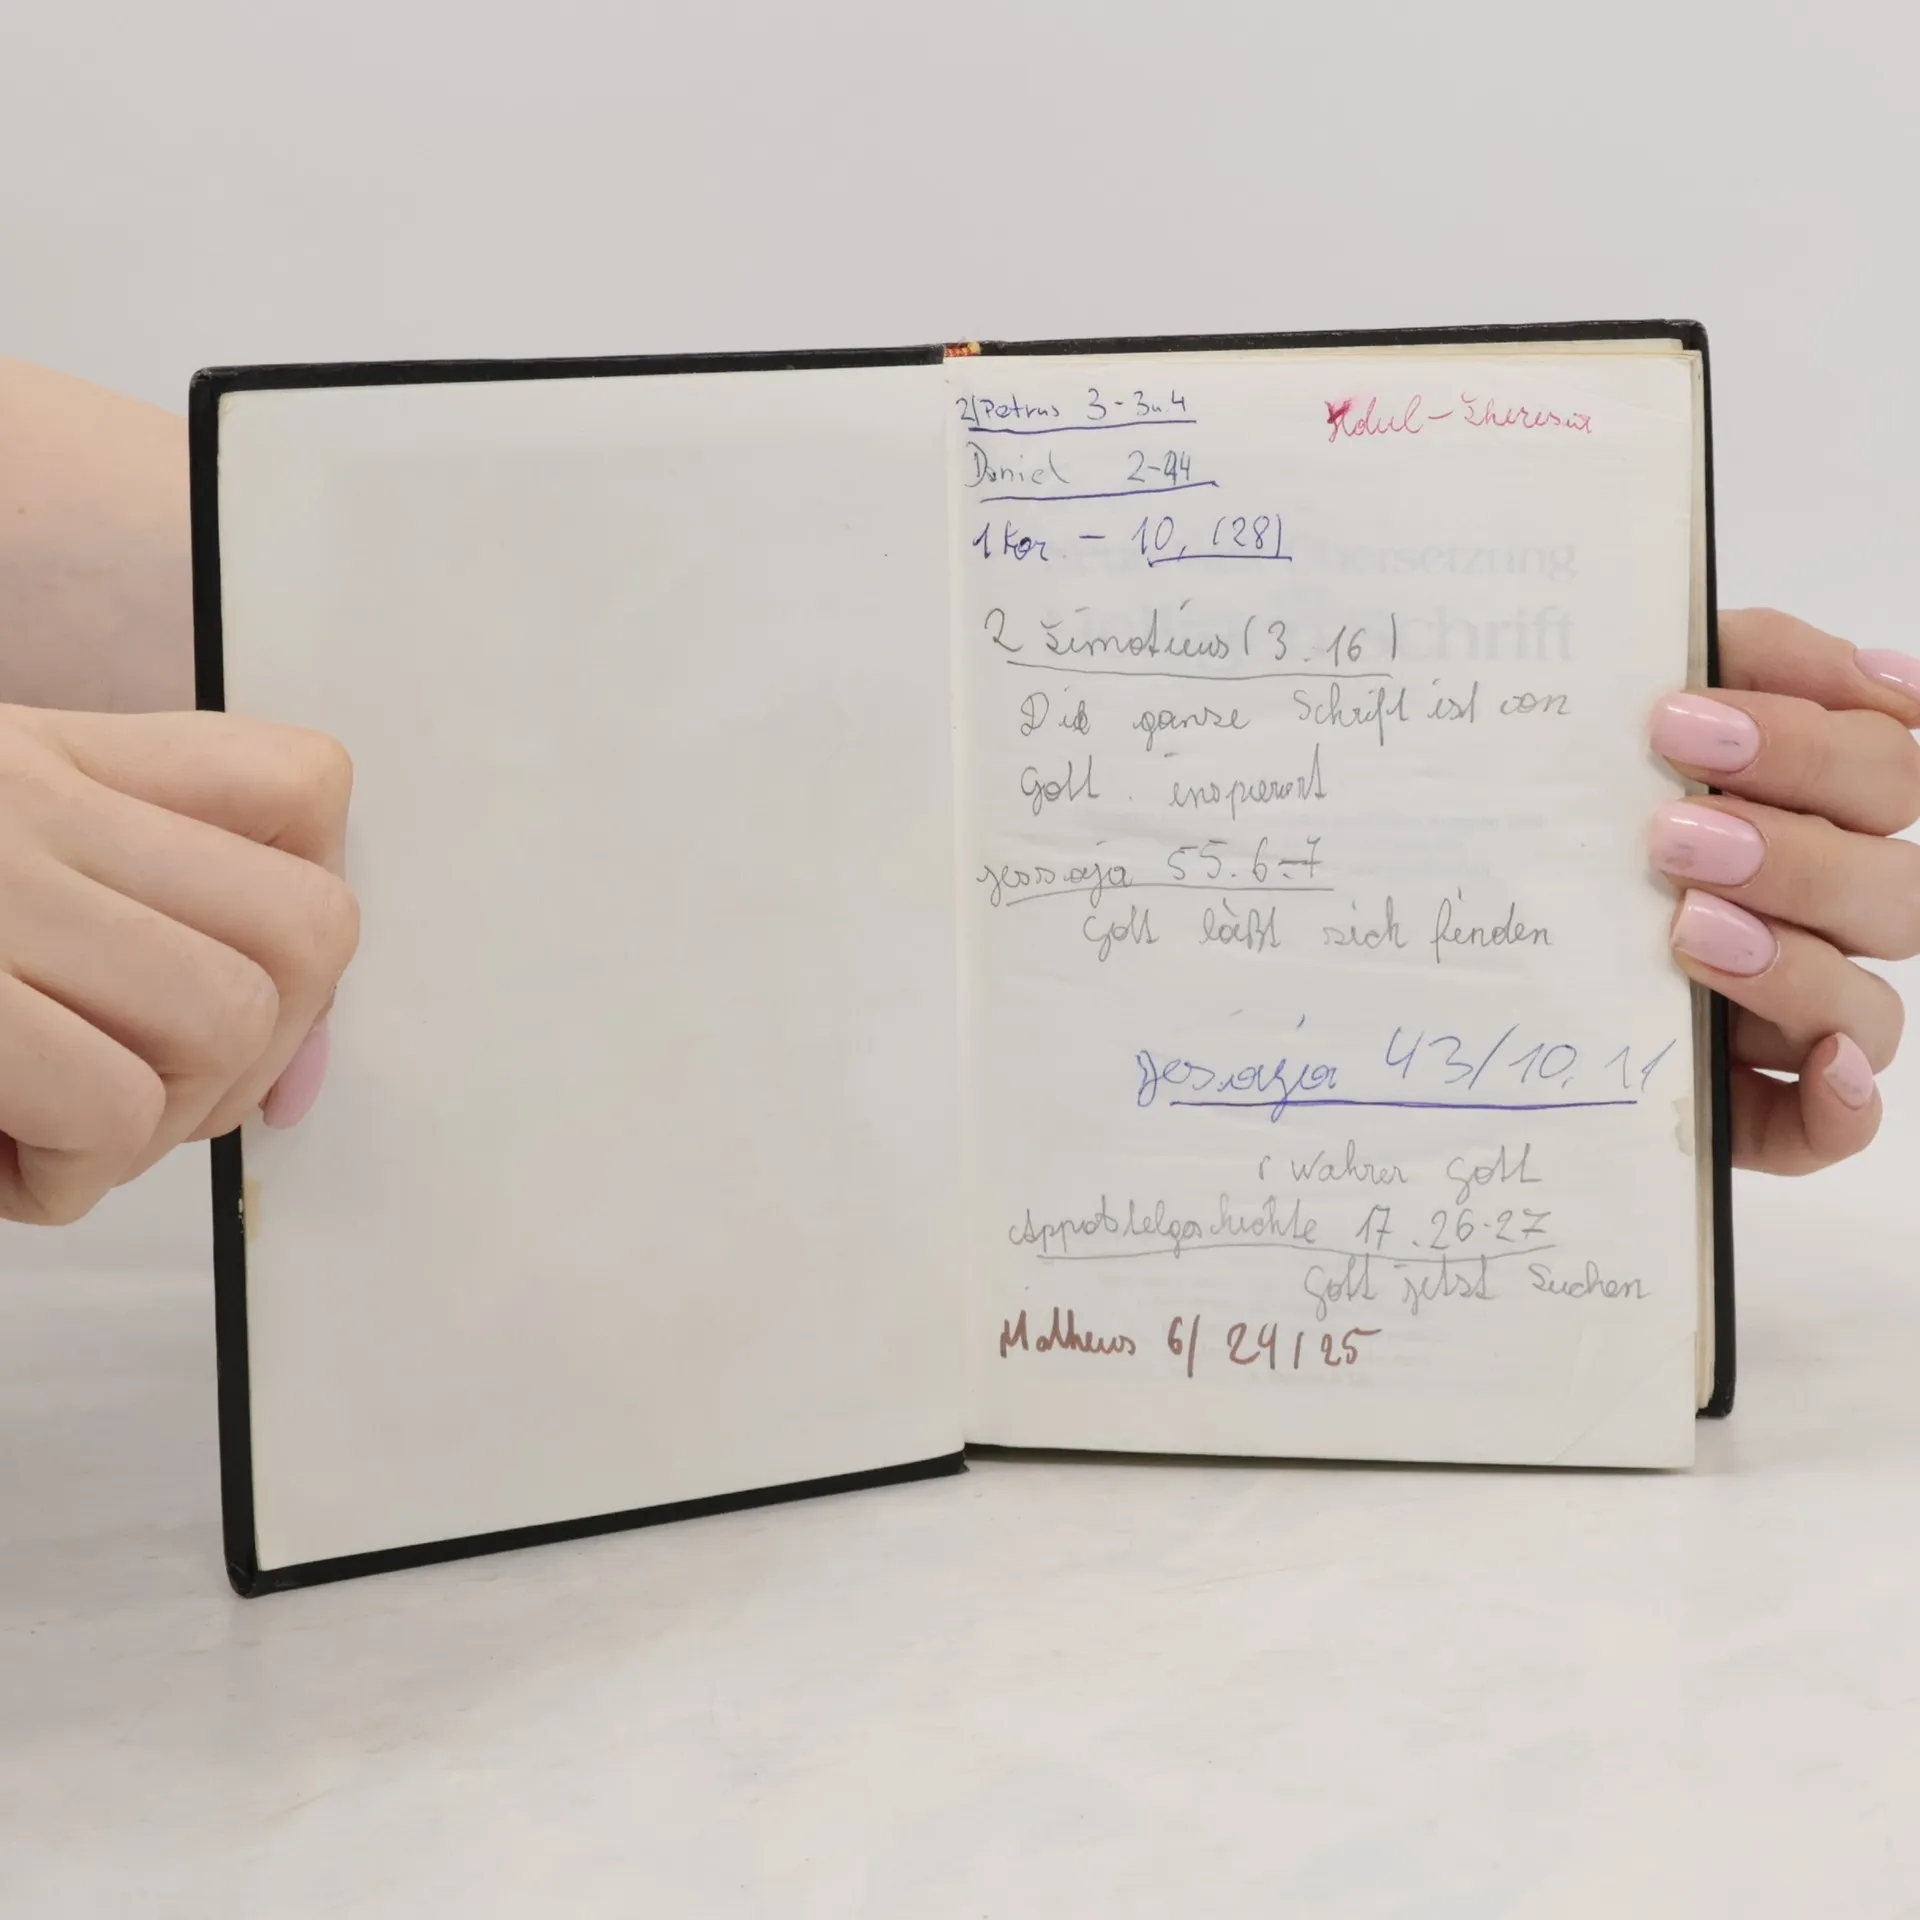 2/Petrus 3-3u.4
Theresia
Daniel 2-44
1 Kor. - 10, (28)
2 Timoteus (3.16)
Die ganze Schrift ist von
Gott. inspieriert
Jessaja 55.6-7
Gott läßt sich finden
Jesaja 43/10.11
wahrer Gott
Appostelgeschichte 17.26-27
Gott jetzt Suchen
Matheus 6/24/25
Übersetzung
Schrift